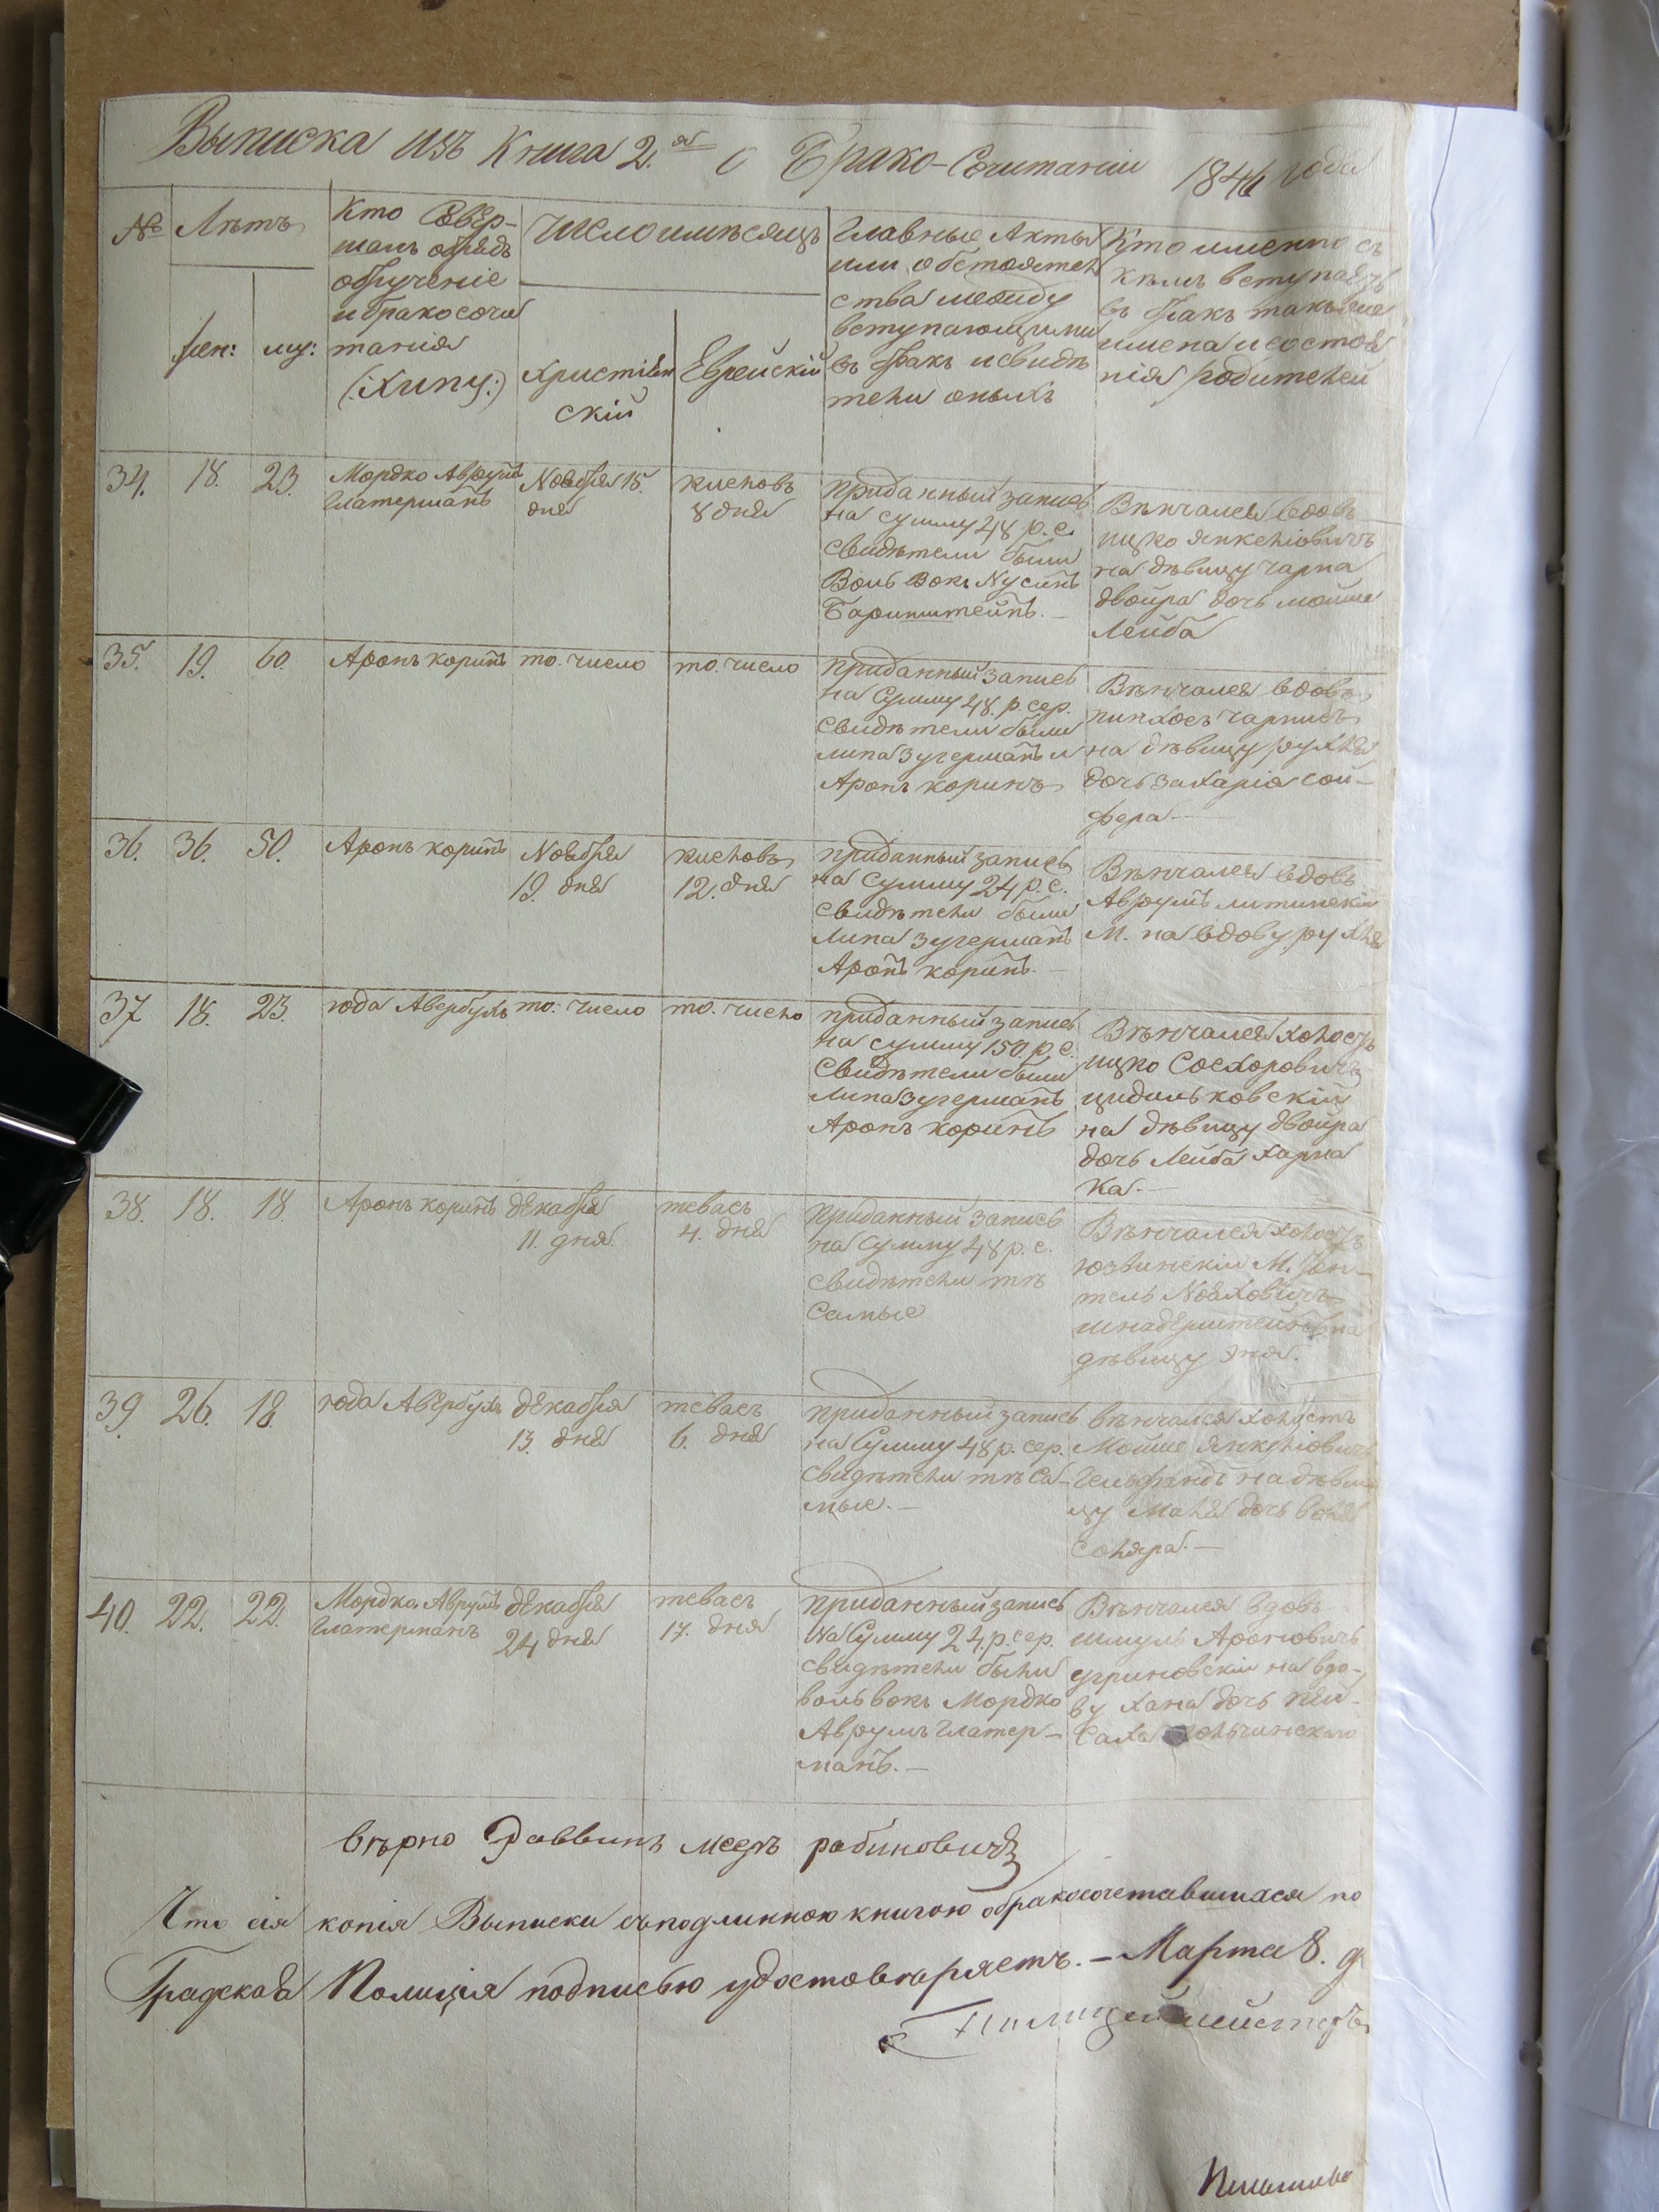 Выписка изъ Книга 2.ая о Брако-Сочитании 1846 года
№ Лѣтъ
жен: муж:
Кто Совѣр-
шалъ обрядъ
обручение
и бракосочи
тания
(:Хипу:)
Число и мѣсяцъ
Християн
ский
Еврейский
Главные Акты
или обстоятел
ства между
вступающими
въ бракъ и свидѣ
тели оныхъ
Кто именно съ
кѣмъ вступаетъ
въ бракъ также
имена и состоя
ния родителей
34. 18. 23.
Мордко Аврумъ
Глатерманъ
Ноября 15.
дня
кислювъ
8 дня
приданный запись
на сумму 48 р. с.
свидѣтели были
Воль Вокъ Нусинъ
Баринштейнъ. —
Вѣнчался вдовъ
ицко янкелювичъ
на дѣвицу Чарна
двойра дочь мошка
Лейба
35. 19. 60.
Аронъ коринъ
то. число
то. число
приданный запись
на Сумму 48. р. сер.
свидѣтели были
липа зугерманъ и
Аронъ коринъ
Вѣнчался вдовъ
пинхосъ Чарнисъ
на дѣвицу рухля
дочь захария сой-
фера —
36. 36. 50.
Аронъ коринъ
Ноября
19. дня
кисловъ
12. дня
приданный запись
на Сумму 24 р. с.
свидѣтели были
липа зугерманъ
Аронъ коринъ. —
Вѣнчался вдовъ
Аврумъ литинский
М. на вдову рухля
37 18. 23.
юда Авербухъ
то. число
то. число
приданный запись
на сумму 150. р. с.
Свидѣтели были
Липа зугерманъ
Аронъ коринъ
Вѣнчался холостъ
ицко Сосхоровичъ
цидильковский
на дѣвицу двойра
дочь Лейба Харма
ка. —
38. 18. 18.
Аронъ коринъ
декабря
11. дня.
тевасъ
4. дня
приданный запись
на Сумму 48 р. с.
свидѣтели тѣ
самые
Вѣнчался холостъ
юзвинский М.
тель Новаховичъ
шнадерштейнъ на
дѣвицу эня.
39. 26. 18.
юда Авербухъ
декабря
13. дня
тевасъ
6. дня
приданный запись
на Сумму 48 р. сер.
свидѣтели тѣ Са-
мые. —
вѣнчался холостъ
Мойше янкелювичъ
Гельфандъ на дѣви
цу Маля дочь воля
соляра. —
40. 22. 22.
Мордка Аврумъ
Глатерманъ
декабря
24 дня
тевасъ
17. дня
приданный запись
на Сумму 24. р. сер.
свидѣтели были
воль вокъ Мордко
Аврумъ Глатер-
манъ. —
Вѣнчался вдовъ
шмуль Ароновичъ
угриновский на вдо-
ву Хана дочь пей-
саха
вѣрно Раввинъ Мееръ рабиновичъ
Что сия копия Выписки съ подлинною книгою о бракосочетавшихся по
Градская Полиция подписью удостовѣряетъ. — Марта 8. д
Полицеймейстеръ